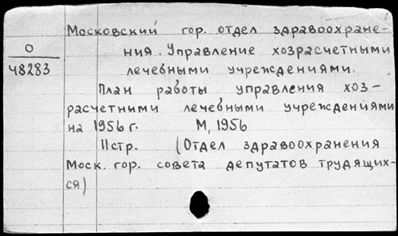 Московский гор. отдел здравоохране-
ния. Управление хозрасчетными
О
48283
лечебными учреждениями.
План работы управления хоз-
расчетными лечебными учреждениями
на 1956 г. М, 1956
11стр. (Отдел здравоохранения
Моск. гор. совета депутатов трудящих-
ся)